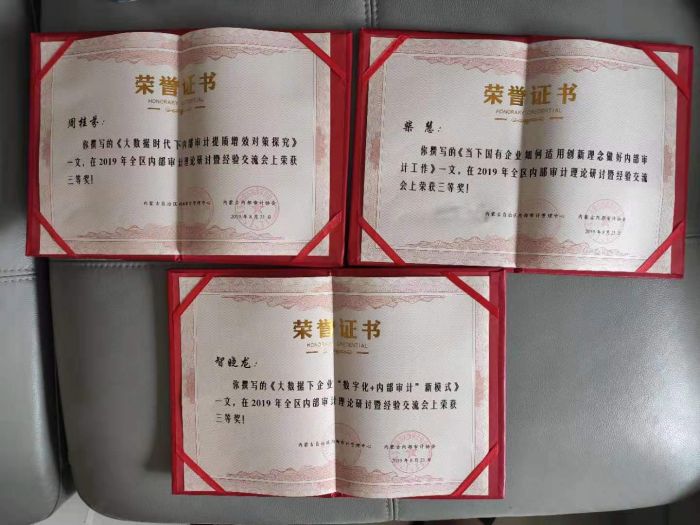 荣誉证书
HONORARY CREDENTIAL
周桂芬：
你撰写的《大数据时代下内部审计提质增效对策探究》
一文，在2019年全区内部审计理论研讨暨经验交流会上荣获
三等奖！
内蒙古自治区内部审计管理中心 内蒙古内部审计协会
2019年8月23日
荣誉证书
HONORARY CREDENTIAL
柴慧：
你撰写的《当下国有企业如何适用创新理念做好内部审
计工作》一文，在2019年全区内部审计理论研讨暨经验交流
会上荣获三等奖！
内蒙古自治区内部审计管理中心 内蒙古内部审计协会
2019年8月23日
荣誉证书
HONORARY CREDENTIAL
智晓龙：
你撰写的《大数据下企业“数字化+内部审计”新模式》
一文，在2019年全区内部审计理论研讨暨经验交流会上荣获
三等奖！
内蒙古自治区内部审计管理中心 内蒙古内部审计协会
2019年8月23日